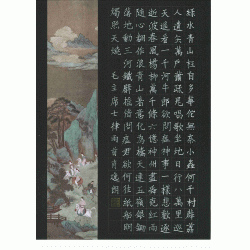 綠水青山枉自多華佗無奈小蟲何千村薜荔
人遺矢萬戶蕭疏鬼唱歌坐地日行八萬里巡
天遙看一千河牛郎欲問瘟神事一樣悲歡逐
逝波春風楊柳萬千條六億神州盡舜堯紅雨
隨心翻作浪青山着意化為橋天連五嶺銀鋤
落地動三河鐵臂搖借問瘟君欲何往紙船明
燭照天燒 毛主席七律二首